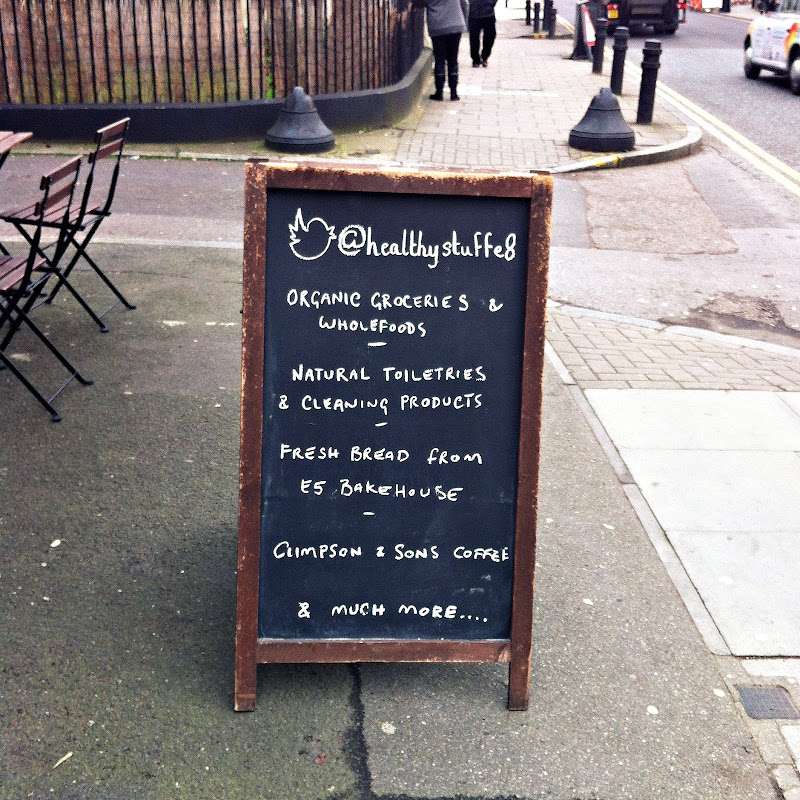 @healthystuffe8
ORGANIC GROCERIES &
WHOLEFOODS
–
NATURAL TOILETRIES
& CLEANING PRODUCTS
–
FRESH BREAD FROM
E5 BAKEHOUSE
–
CLIMPSON & SONS COFFEE
& MUCH MORE....